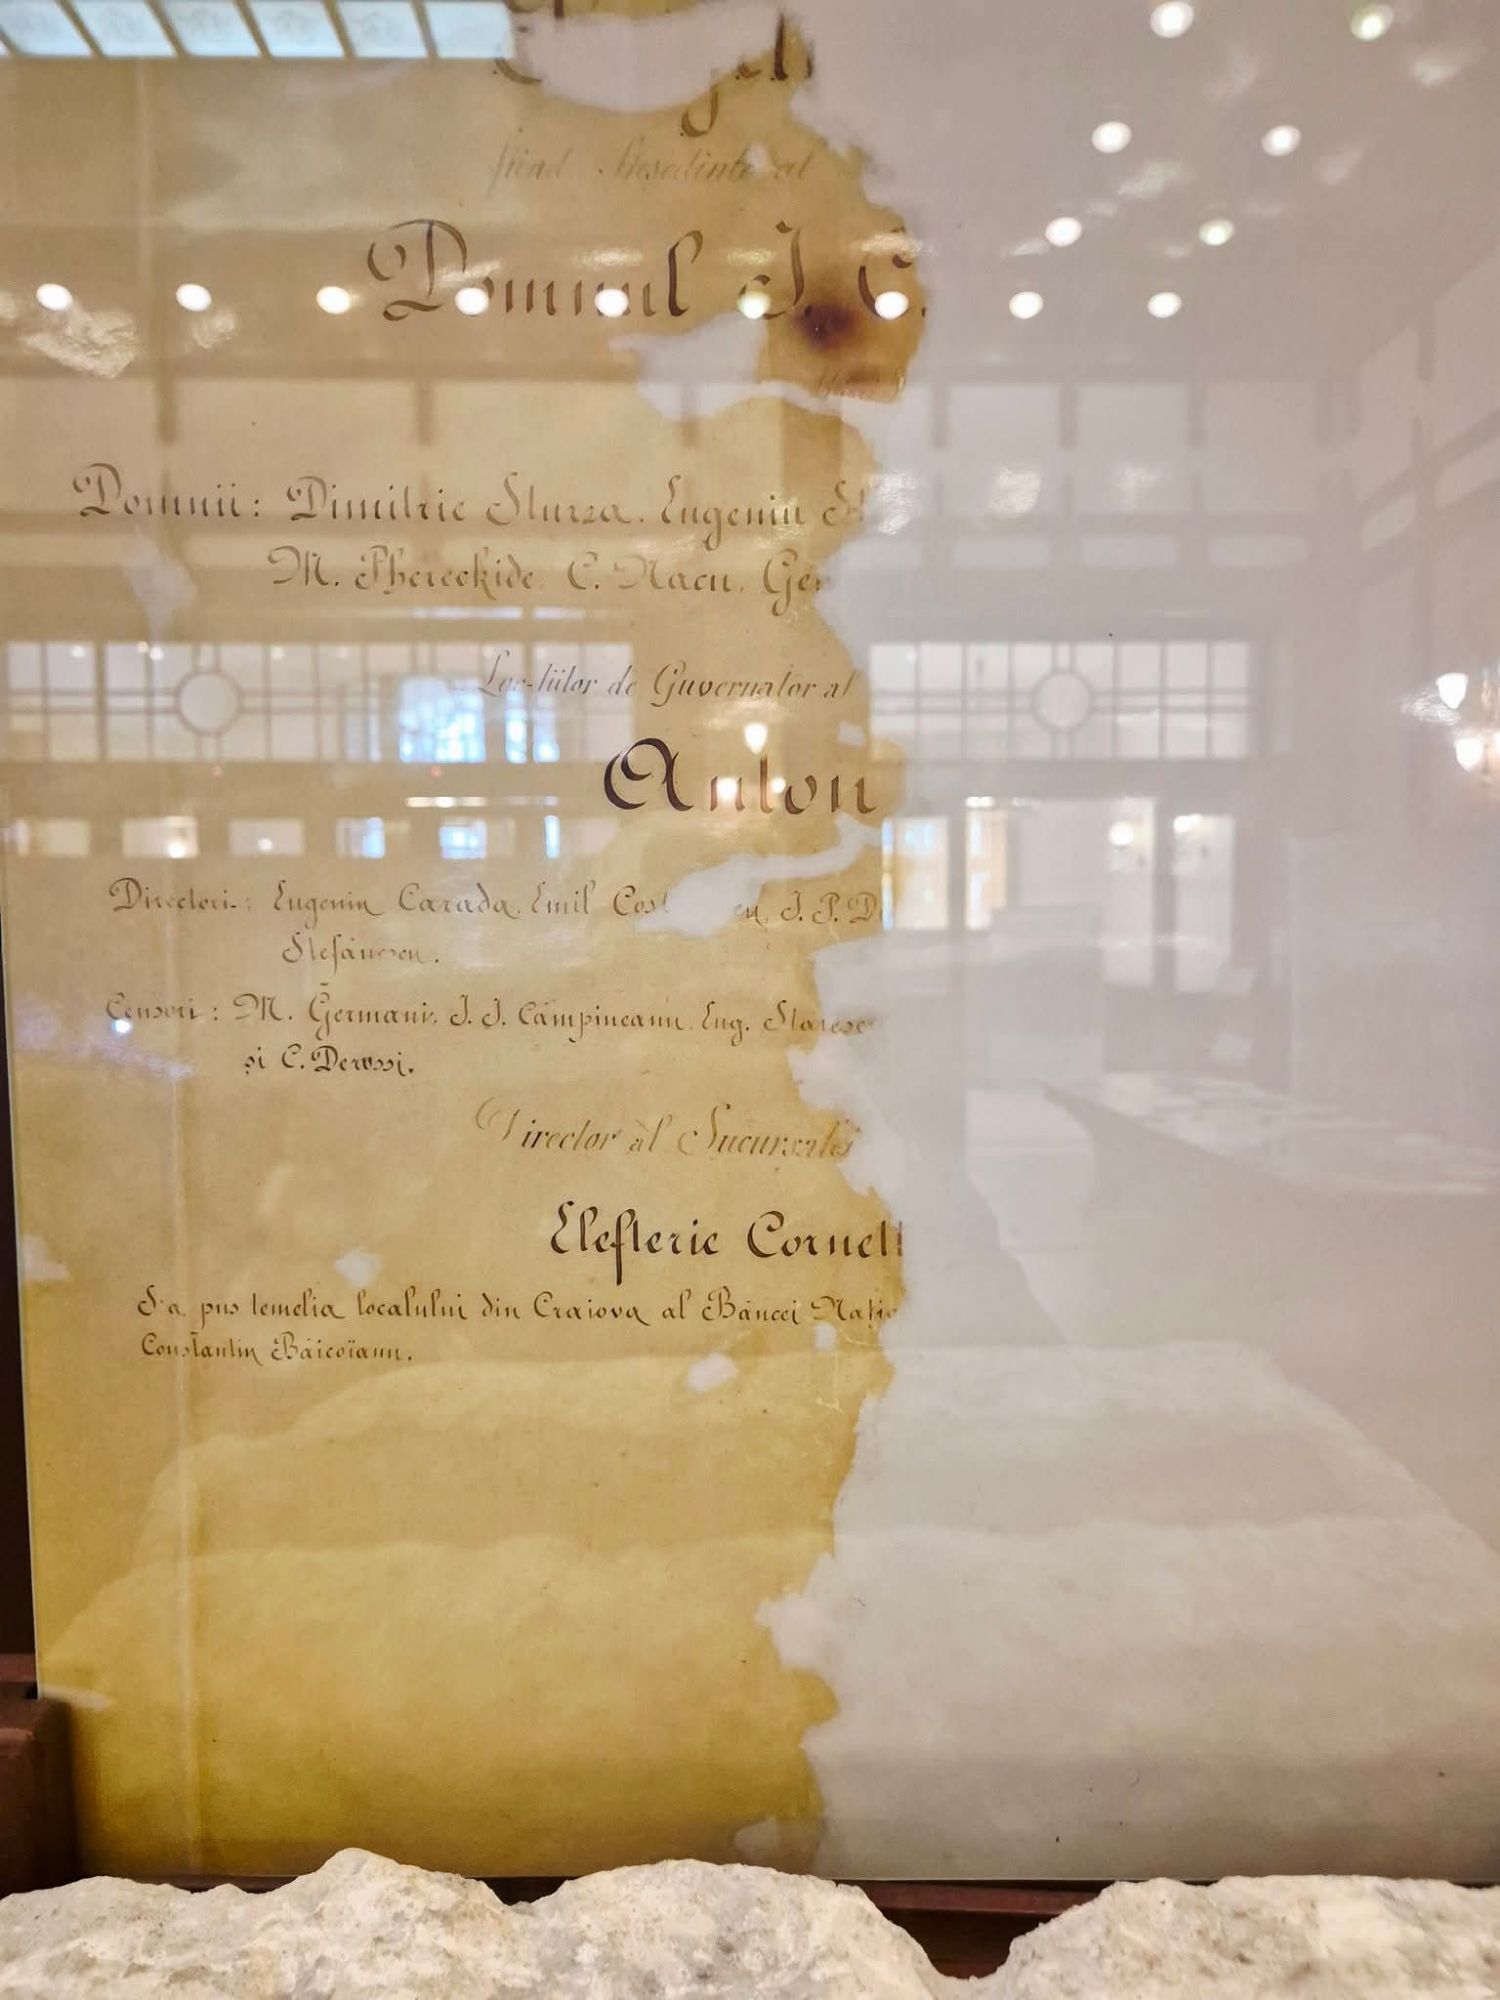 fiind Presedinte al
Domnul I. C.
Domnii: Dimitrie Sturza. Eugeniu
M. Pherekide. C. Nacu.
Loc-tiitor de Guvernator al
Anton
Directori: Eugeniu Carada, Emil I. P.
Stefănescu.
Censori: M. Germani, I. I. Câmpineanu. Eug.
și C. Derussi.
Director al Sucursalei
Elefterie
S'a pus temelia localului din Craiova al Băncei
Constantin Băicoïanu.